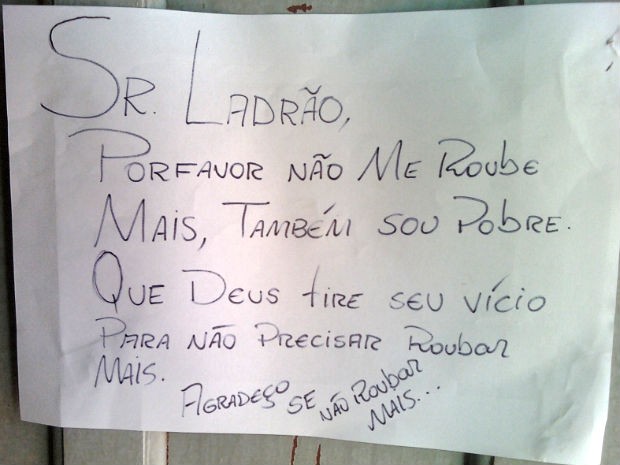 SR. LADRÃO,
PORFAVOR NÃO ME ROUBE
MAIS, TAMBÉM SOU POBRE.
QUE DEUS TIRE SEU VÍCIO
PARA NÃO PRECISAR ROUBAR
MAIS.
AGRADEÇO SE NÃO ROUBAR
MAIS...